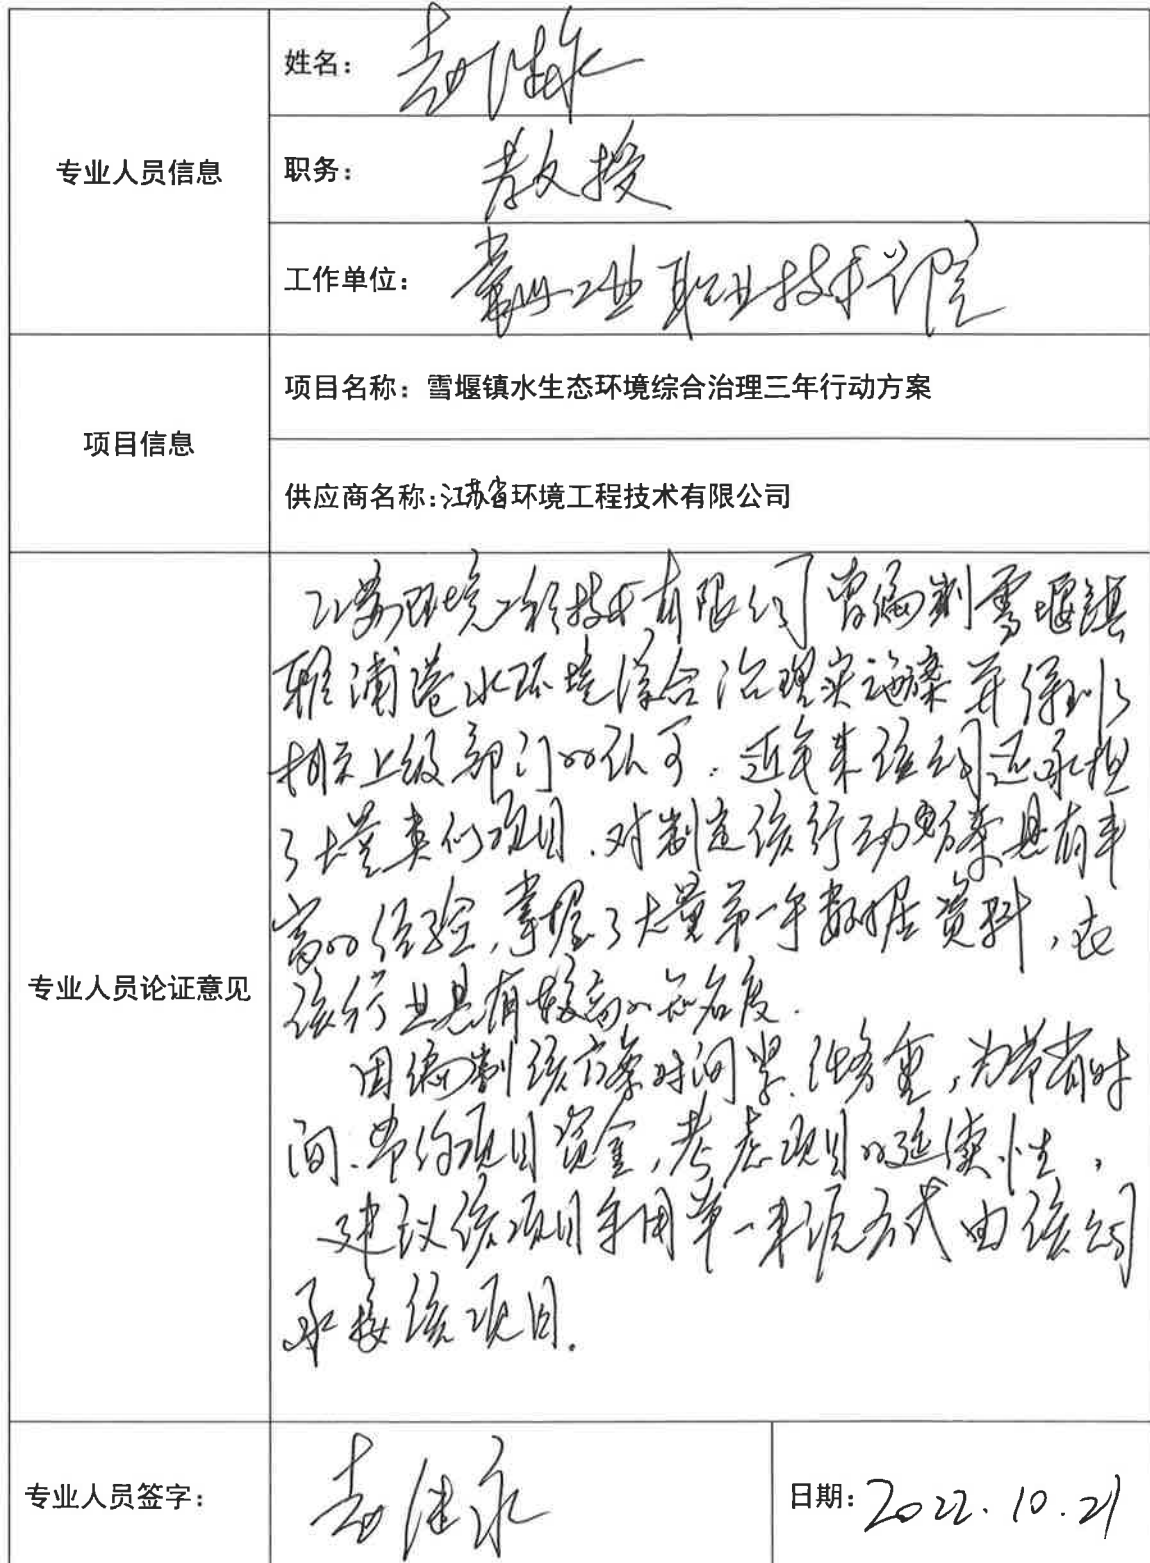 姓名:
专业人员信息
职务: 教授
工作单位: 常州工业职业技术学院
项目信息
项目名称: 雪堰镇水生态环境综合治理三年行动方案
供应商名称:江苏省环境工程技术有限公司
专业人员论证意见
江苏环境工程技术有限公司曾编制雪堰镇
雅浦港水环境综合治理实施方案并得到了
相关上级部门的认可.近年来该公司还承担
了大量类似项目.对制定该行动方案具有丰
富的经验,掌握了大量第一手数据资料,在
该行业具有较高的知名度.
因编制该方案时间紧.任务重,为节省时
间.节约项目资金,考虑项目的延续性,
建议该项目采用单一来源方式由该公司
承接该项目.
专业人员签字:
日期: 2022.10.21